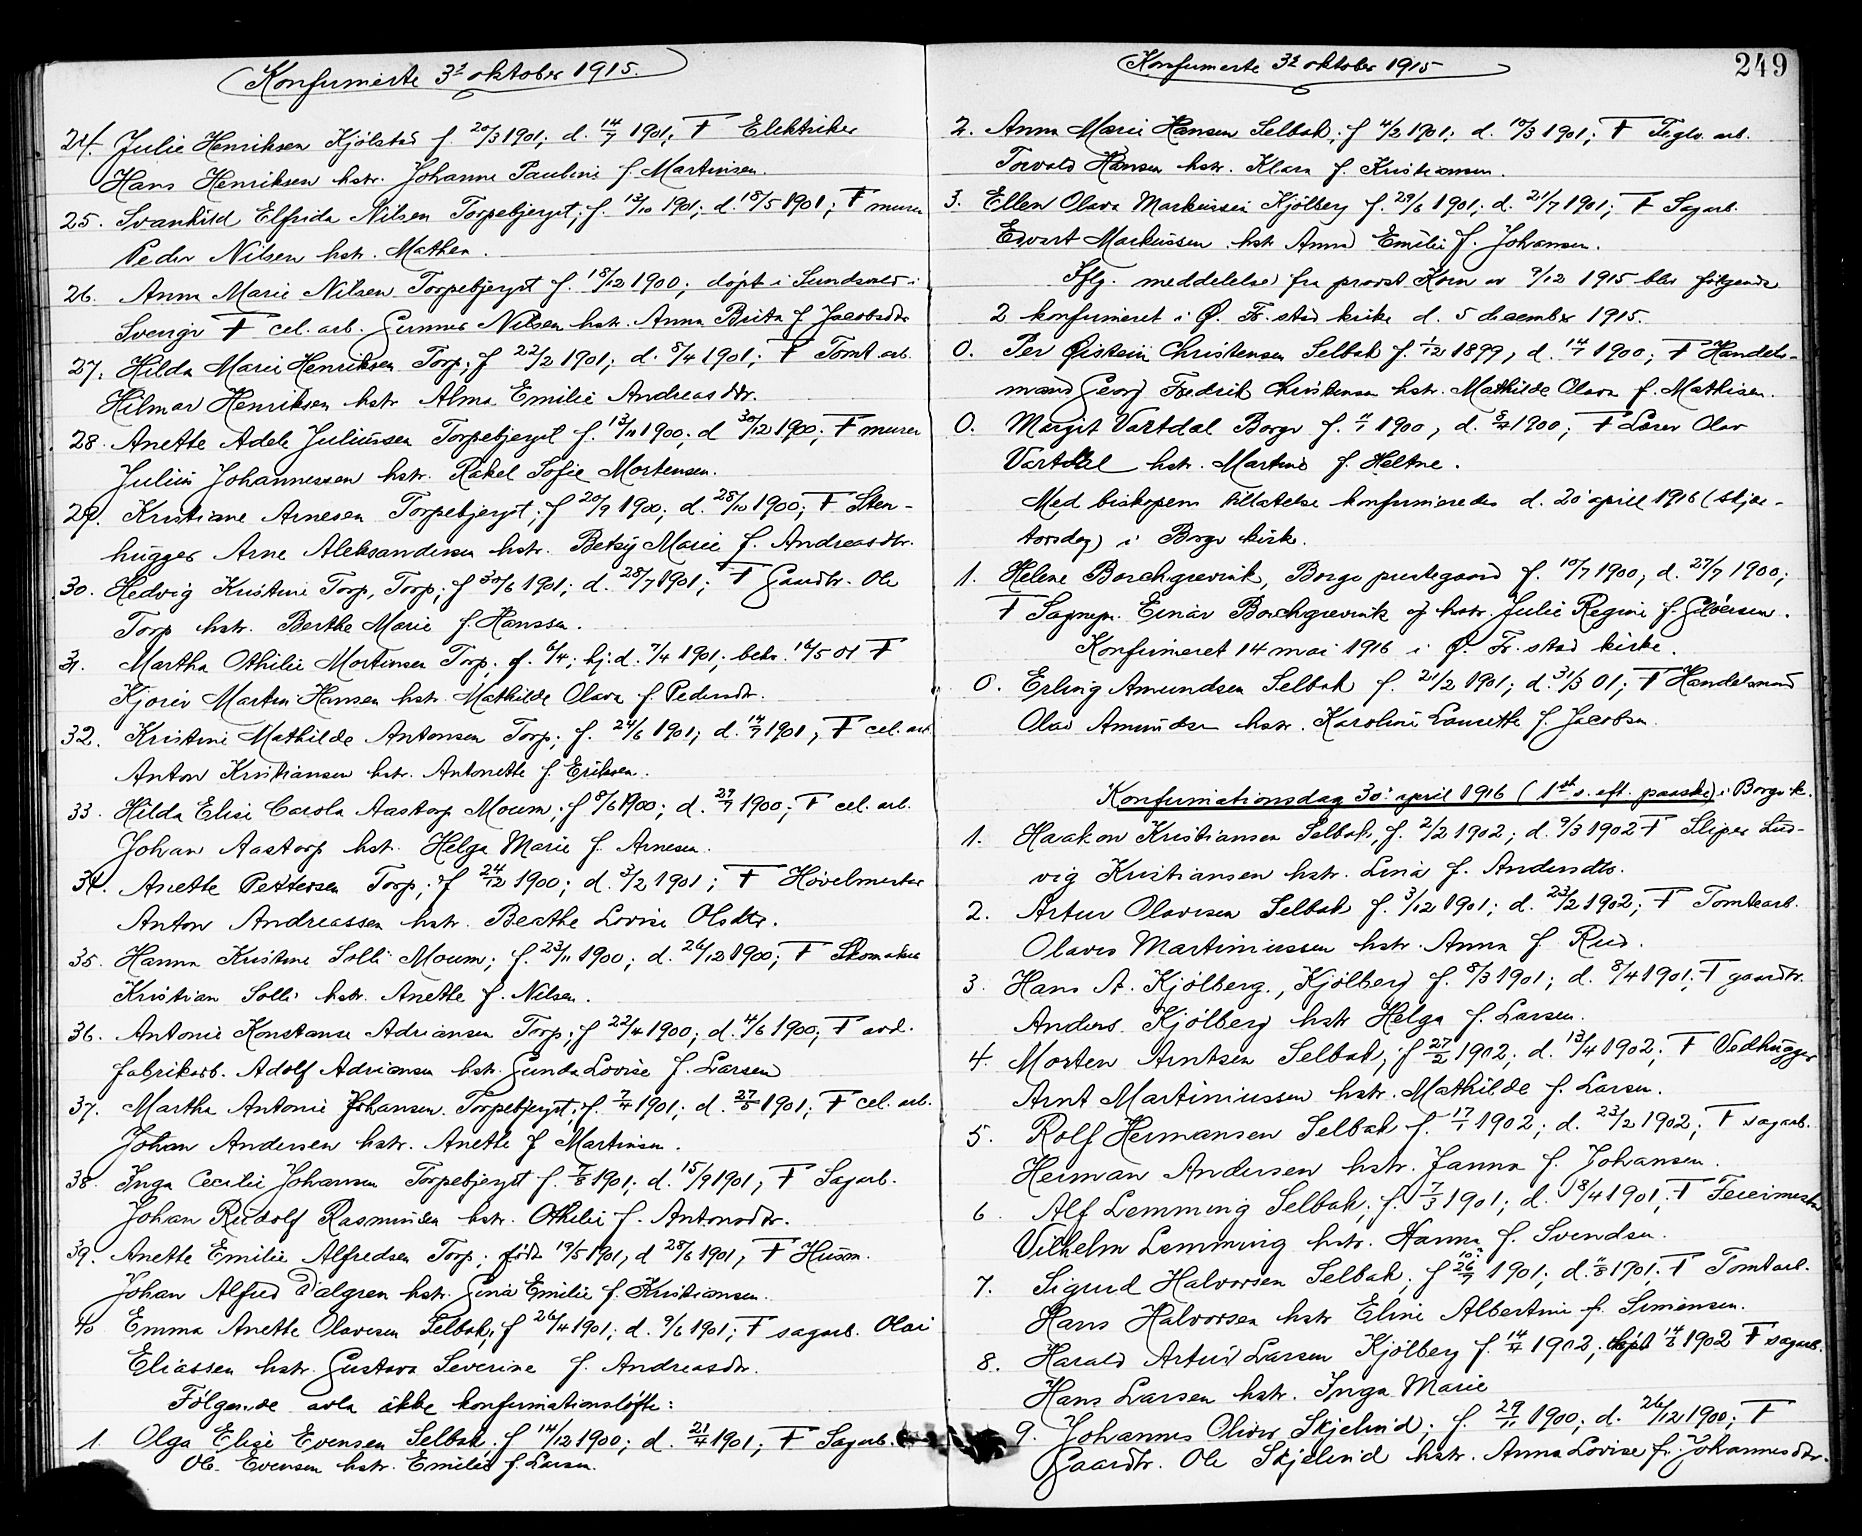 Konfirmerte 3ᵈ oktober 1915.
24. Julie Henriksen Kjölstad f. 20/3 1901; d. 14/7 1901; F Elektriker
Hans Henriksen hstr. Johanne Pauline f. Martinsen.
25. Svanhild Elfrida Nilsen Torpebjerget; f. 13/10 1901; d. 18/5 1901; F murer
Peder Nilsen hstr. Mathea.
26. Anna Marie Nilsen Torpebjerget f. 18/12 1900; döpt i Sundsvald i
Sverige F cel. arb. Gunnar Nilsen hstr. Anna Brita f. Jacobsdtr
27. Hilda Marie Henriksen Torp; f 22/2 1901; d. 8/4 1901; F Tomt. arb.
Hilmar Henriksen hstr Alma Emilie Andreasdtr.
28. Anette Adele Juliussen Torpebjerget f. 13/11 1900; d 30/12 1900; F murer
Julius Johannessen hstr. Rakel Sofie Mortensen.
29. Kristiane Arnesen Torpebjerget; f 20/9 1900; d. 28/10 1900; F Sten-
hugger Arne Aleksandersen hstr. Betsy Marie f. Andreasdtr.
30. Hedvig Kristine Torp, Torp; f 30/6 1901; d. 28/7 1901; F Gaardbr. Ole
Torp hstr. Berthe Marie f. Hanssen.
31. Martha Othilie Mortensen Torp; f. 6/4; hj.d. 7/4 1901; bekr. 16/5 01 F
Kjörer Martin Hansen hstr. Mathilde Olava f. Pedersdtr.
32. Kristine Mathilde Antonsen Torp; f. 24/6 1901; d. 14/7 1901; F cel. arb
Anton Kristiansen hstr. Antonette f. Eriksen.
33. Hilda Elise Carola Aastorp Moum; f 8/6 1900; d. 29/7 1900; F cel. arb.
Johan Aastorp hstr. Helga Marie f. Arnesen.
34. Anette Pettersen Torp; f 24/12 1900; d. 3/2 1901; F Hövelmester
Anton Andreassen hstr. Berthe Lovise Olsdtr.
35. Hanna Kristine Solli Moum; f. 23/11 1900; d. 26/12 1900; F Skomaker
Kristian Solli hstr. Anette f. Nilsen.
36. Antonie Konstanse Adriansen Torp; f 22/4 1900; d. 4/6 1900; F avd.
fabrikarb. Adolf Adriansen hstr. Gunda Lovise f. Larsen
37. Martha Antonie Johansen Torpebjerget; f. 7/4 1901; d. 27/5 1901; F cel. arb.
Johan Andersen hstr. Anette f Martinsen.
38. Inga Cecilie Johansen Torpebjerget f. 7/8 1901; d. 15/9 1901; F Sagarb.
Johan Rudolf Rasmussen hstr. Othilie f. Antonsdtr.
39. Anette Emilie Alfredsen Torp; födt 19/5 1901, d 28/6 1901, F Husm.
Johan Alfred Dalgren hstr. Gina Emilie f. Kristiansen.
40 Emma Anette Olavesen Selbak; f 26/4 1901; d. 9/6 1901; F sagarb. Olai
Eliassen hstr. Gustava Severine f. Andreasdtr.
Følgende avla ikke konfirmationsløfte:
1. Olga Elise Evensen Selbak. f 14/12 1900; d. 21/4 1901; F Sagarb.
Ole Evensen hstr. Emilie f. Larsen.
Konfirmerte 3ᵈ oktober 1915
249
2. Anna Marie Hansen Selbak; f 4/2 1901; d. 10/3 1901; F Teglv. arb.
Torvald Hansen hstr. Klara f. Kristiansen.
3. Ellen Olava Markussen Kjölberg f. 29/6 1901; d. 21/7 1901; F Sagarb.
Edvart Markussen hstr Anna Emilie f. Johansen.
Iflg. meddelelse fra provst Koren av 9/12 1915 blev følgende
2 konfirmeret i Ø. Fr.stad kirke d. 5 december 1915.
0. Per Øistein Christensen Selbak f. 1/12 1899, d. 14/1 1900; F Handels-
mand Georg Fredrik Christensen hstr. Mathilde Olava f. Mathisen.
0. Margit Vartdal Borge f. 11/1 1900, d. 8/4 1900; F Lærer Olav
Vartdal hstr. Martine f. Heltne.
Med biskopens tillatelse konfirmeredes d. 20 april 1916 (skjær-
torsdag) i Borge kirke.
1. Helene Borchgrevink, Borge prestegaard f. 10/7 1900, d. 27/7 1900;
F Sognepr. Einar Borchgrevink og hstr. Julie Regine f. Siversen.
Konfirmeret 14 mai 1916 i Ø. Fr.stad kirke.
0. Erling Amundsen Selbak f. 21/2 1901; d. 31/3 01; F Handelsmand
Olai Amundsen hstr. Karoline Laurette f. Jacobsen.
Konfirmationsdag 30: april 1916 (1ste s. eft. paaske) i Borge k.
1. Haakon Kristiansen Selbak, f. 2/2 1902; d. 9/3 1902 F Sliper Lud-
vig Kristiansen hstr. Lina f. Andersdtr.
2. Artur Olavesen Selbak f. 3/12 1901; d. 23/2 1902; F Tomtearb.
Olaves Martiniussen hstr. Anna f Rud.
3. Hans A. Kjölberg, Kjölberg f. 8/3 1901; d. 8/4 1901; F gaardbr.
Anders Kjölberg hstr Helga f. Larsen.
4. Morten Arntsen Selbak; f 27/2 1902; d. 13/4 1902; F Vedhugger
Arnt Martiniussen hstr. Mathilde f. Larsen.
5. Rolf Hermansen Selbak f. 17/1 1902; d. 23/2 1902; F sagarb.
Herman Andersen hstr. Janna f. Johansen.
6. Alf Lemming Selbak; f. 7/3 1901; d. 8/4 1901; F Feiermester
Vilhelm Lemming hstr. Hanna f. Svendsen.
7. Sigurd Halvorsen Selbak; f 26/7 1901; d. 11/8 1901; F Tomtarb.
Hans Halvorsen hstr Eline Albertine f. Simensen.
8. Harald Artur Larsen Kjölberg f. 14/4 1902; döpt 14/6 1902 F sagarb.
Hans Larsen hstr. Inga Marie
9. Johannes Oliver Skjelin'd; f. 29/11 1900; d. 26/12 1900; F
Gaardbr. Ole Skjelin'd hstr. Anna Lovise f. Johannesdtr.